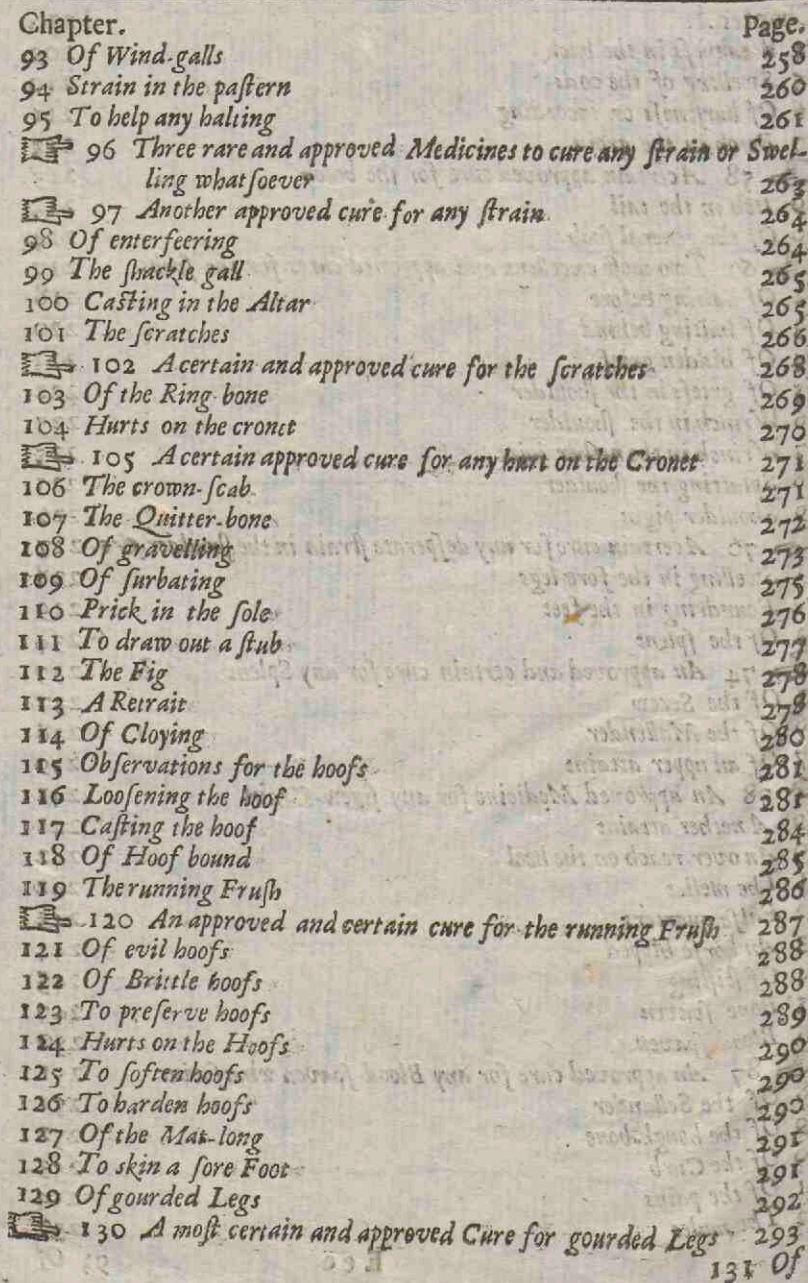 Chapter. Page.
93 Of Wind-galls 258
94 Strain in the paſtern 260
95 To help any halting 261
☞ 96 Three rare and approved Medicines to cure any ſtrain or Swel-
ling whatſoever 263
☞ 97 Another approved cure for any ſtrain 264
98 Of enterfeering 264
99 The ſhackle gall 265
100 Caſting in the Altar 265
101 The ſcratches 266
☞ 102 A certain and approved cure for the ſcratches 268
103 Of the Ring-bone 269
104 Hurts on the cronet 270
☞ 105 A certain approved cure for any hurt on the Cronet 271
106 The crown-ſcab 271
107 The Quitter-bone 272
108 Of gravelling 273
109 Of ſurbating 275
110 Prick in the ſole 276
111 To draw out a ſtub 277
112 The Fig 278
113 A Retrait 278
114 Of Cloying 280
115 Obſervations for the hoofs 281
116 Looſening the hoof 281
117 Caſting the hoof 284
118 Of Hoof bound 285
119 The running Fruſh 286
☞ 120 An approved and certain cure for the running Fruſh 287
121 Of evil hoofs 288
122 Of Brittle hoofs 288
123 To preſerve hoofs 289
124 Hurts on the Hoofs 290
125 To ſoften hoofs 290
126 To harden hoofs 290
127 Of the Mal-long 291
128 To skin a ſore Foot 291
129 Of gourded Legs 292
☞ 130 A moſt certain and approved Cure for gourded Legs 293
131 Of